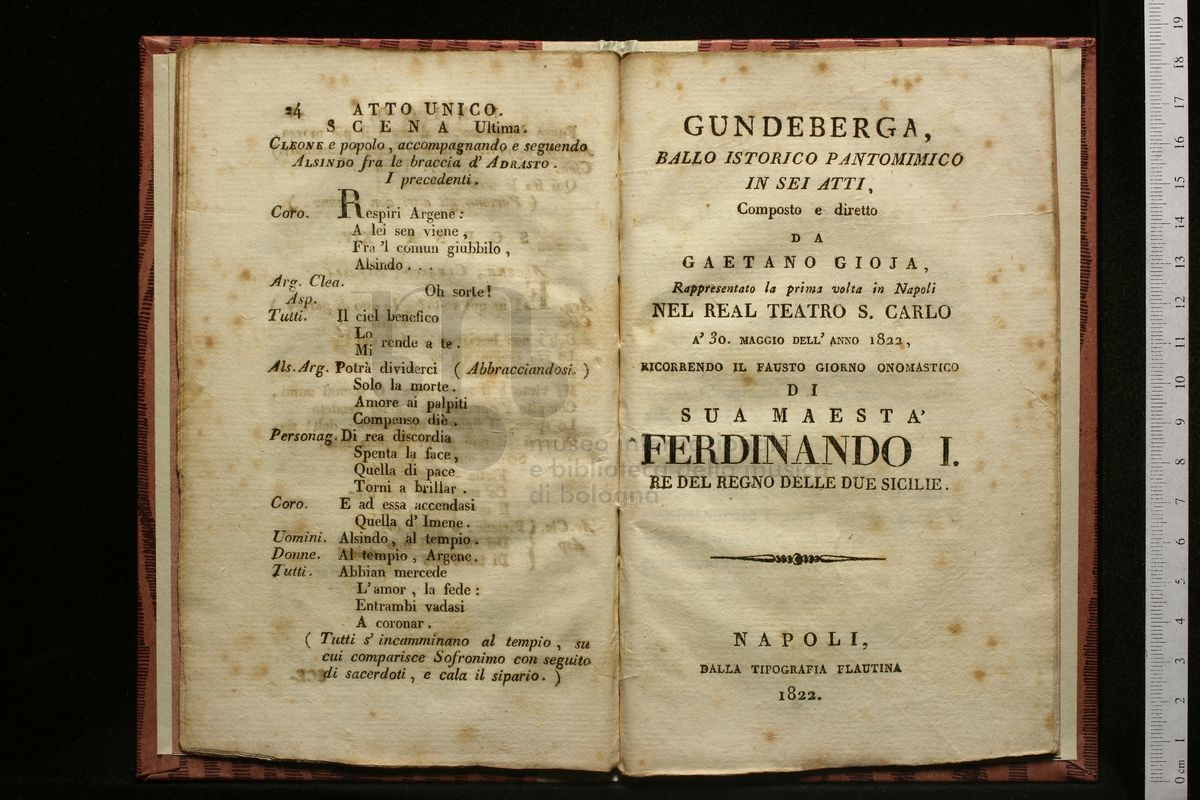 24 ATTO UNICO.
SCENA Ultima.
CLEONE e popolo, accompagnando e seguendo
ALSINDO fra le braccia d' ADRASTO.
I precedenti.
Coro. Respiri Argene:
A lei sen viene,
Fra 'l comun giubbilo,
Alsindo...
Arg. Clea.
Asp. Oh sorte!
Tutti. Il ciel benefico
Lo
Mi rende a te.
Als. Arg. Potrà dividerci (Abbracciandosi.)
Solo la morte.
Amore ai palpiti
Compenso diè.
Personag. Di rea discordia
Spenta la face,
Quella di pace
Torni a brillar.
Coro. E ad essa accendasi
Quella d' Imene.
Uomini. Alsindo, al tempio.
Donne. Al tempio, Argene.
Tutti. Abbian mercede
L'amor, la fede:
Entrambi vadasi
A coronar.
(Tutti s' incamminano al tempio, su
cui comparisce Sofronimo con seguito
di sacerdoti, e cala il sipario.)
GUNDEBERGA,
BALLO ISTORICO PANTOMIMICO
IN SEI ATTI,
Composto e diretto
DA
GAETANO GIOJA,
Rappresentato la prima volta in Napoli
NEL REAL TEATRO S. CARLO
A' 30. MAGGIO DELL' ANNO 1822,
RICORRENDO IL FAUSTO GIORNO ONOMASTICO
DI
SUA MAESTA'
FERDINANDO I.
RE DEL REGNO DELLE DUE SICILIE.
NAPOLI,
DALLA TIPOGRAFIA FLAUTINA
1822.
museo
e biblioteca della musica
di bologna
0 cm 1 2 3 4 5 6 7 8 9 10 11 12 13 14 15 16 17 18 19